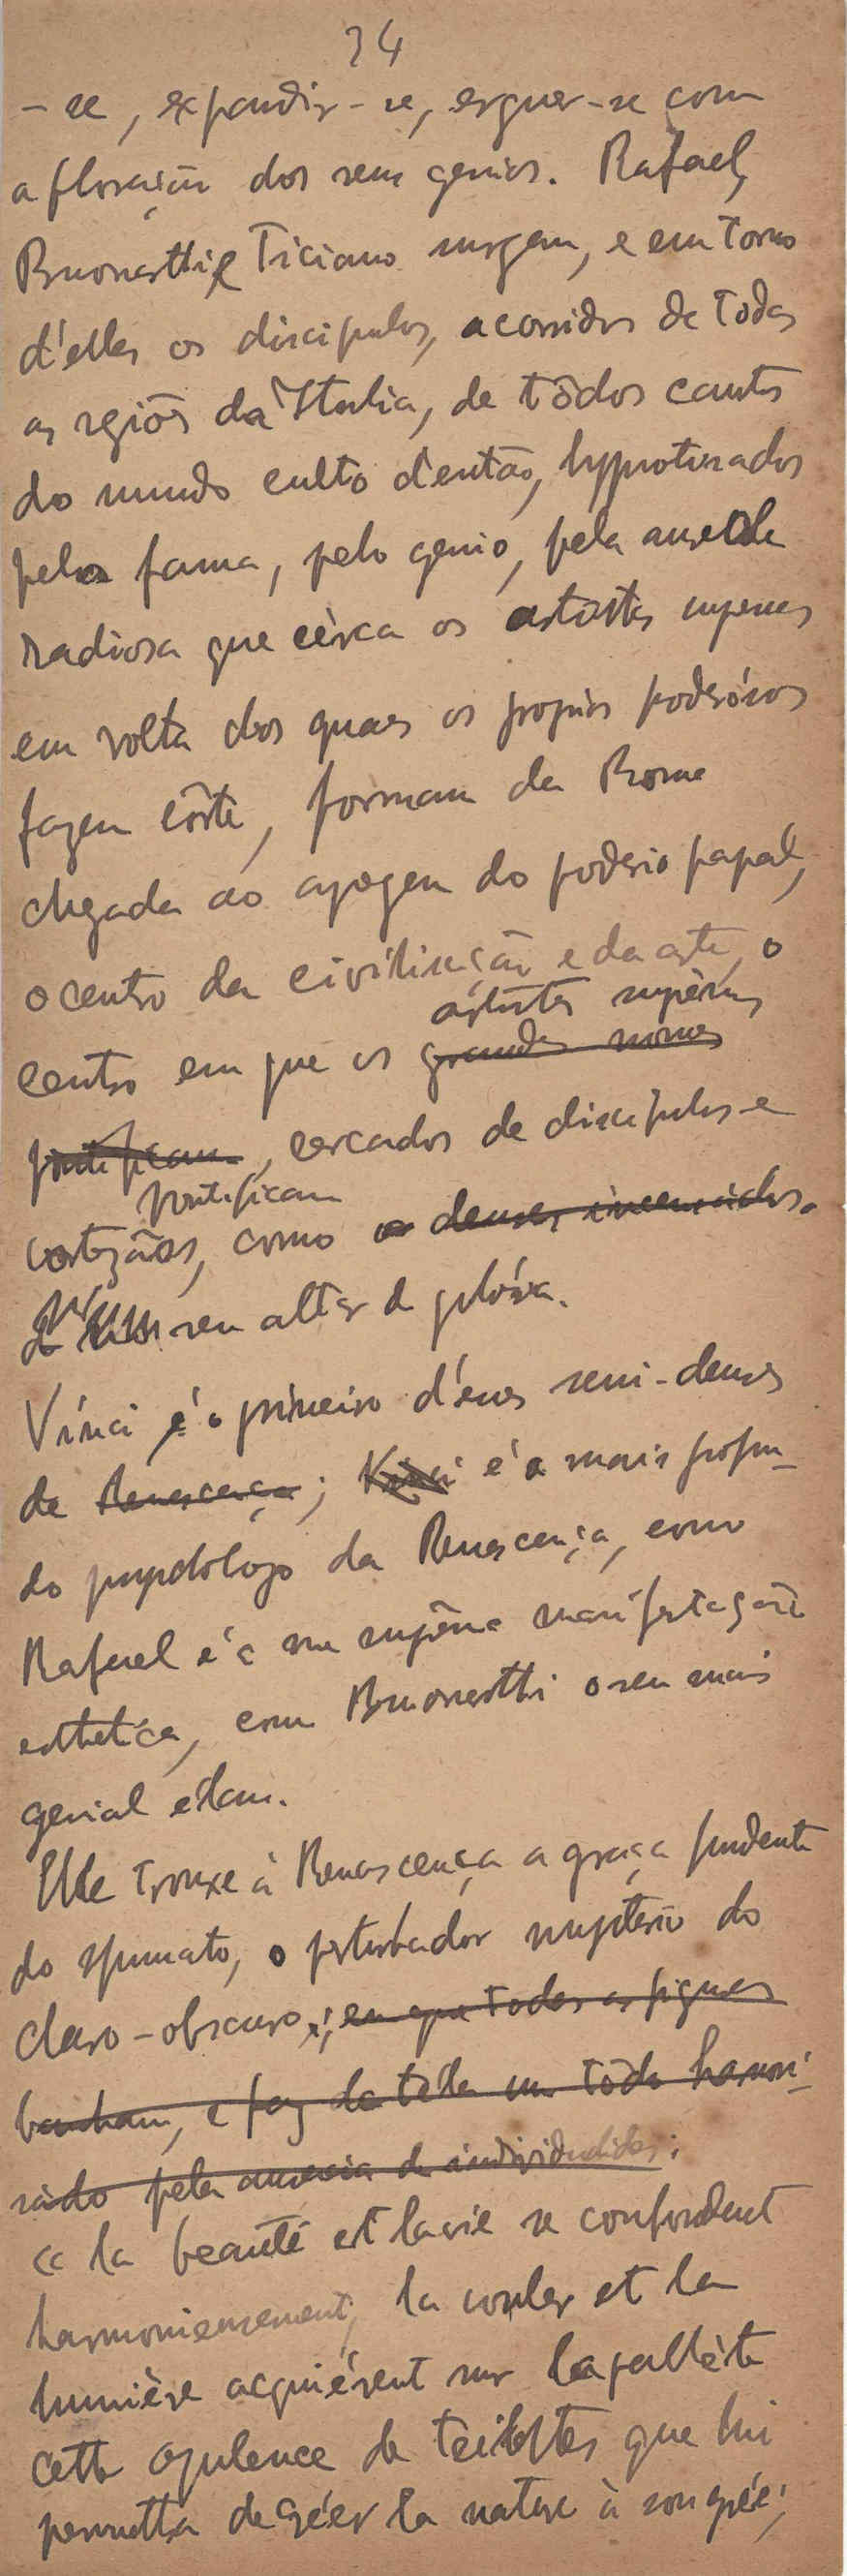 34
-se, expandir-se, erguer-se com
a floração dos seus genios. Rafael,
Buonarotti e Ticiano surgem, e em torno
d'elles os discipulos, acorridos de todas
as regiões da Italia, de tôdos cantos
do mundo culto d'então, hypnotisados
pela fama, pelo genio, pela aureola
radiosa que cérca os artistas supremos
em volta dos quaes os proprios poderósos
fazem côrte, formam da Roma
chegada ao apogeu do poderio papal,
o centro da civilisação e da arte, o
artistas suprêmos
centro em que os grandes nomes
pontificam, cercados de discipulos e
pontificam
cortezãos, como deuses incensados.
seu altar de glória.
Vinci é o primeiro d'esses semi-deuses
da Renascença; Vinci é o mais profun-
do psychólogo da Renascença, como
Rafael é a sua suprêma manifestação
esthetica, como Buonarotti o seu mais
genial elan.
Elle trouxe à Renascença a graça fundente
do sfumato, o perturbador mysterio do
claro-obscuro; em que todas as figuras
banham, e faz da tela um tôdo harmoni-
sádo pela ausencia de individualidades:
« la beauté et la vie se confondent
harmonieusement, la couler et la
lumière acquiérent sur la pallète
cette opulence de teintes que lui
permettra de créer la nature à son gré;